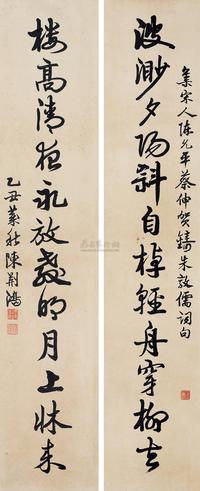 集宋人陳允平蔡伸賀鑄朱敦儒詞句
波渺夕陽斜自棹輕舟穿柳去
樓高清夜永放教明月上牀來
乙丑秋陳荊鴻